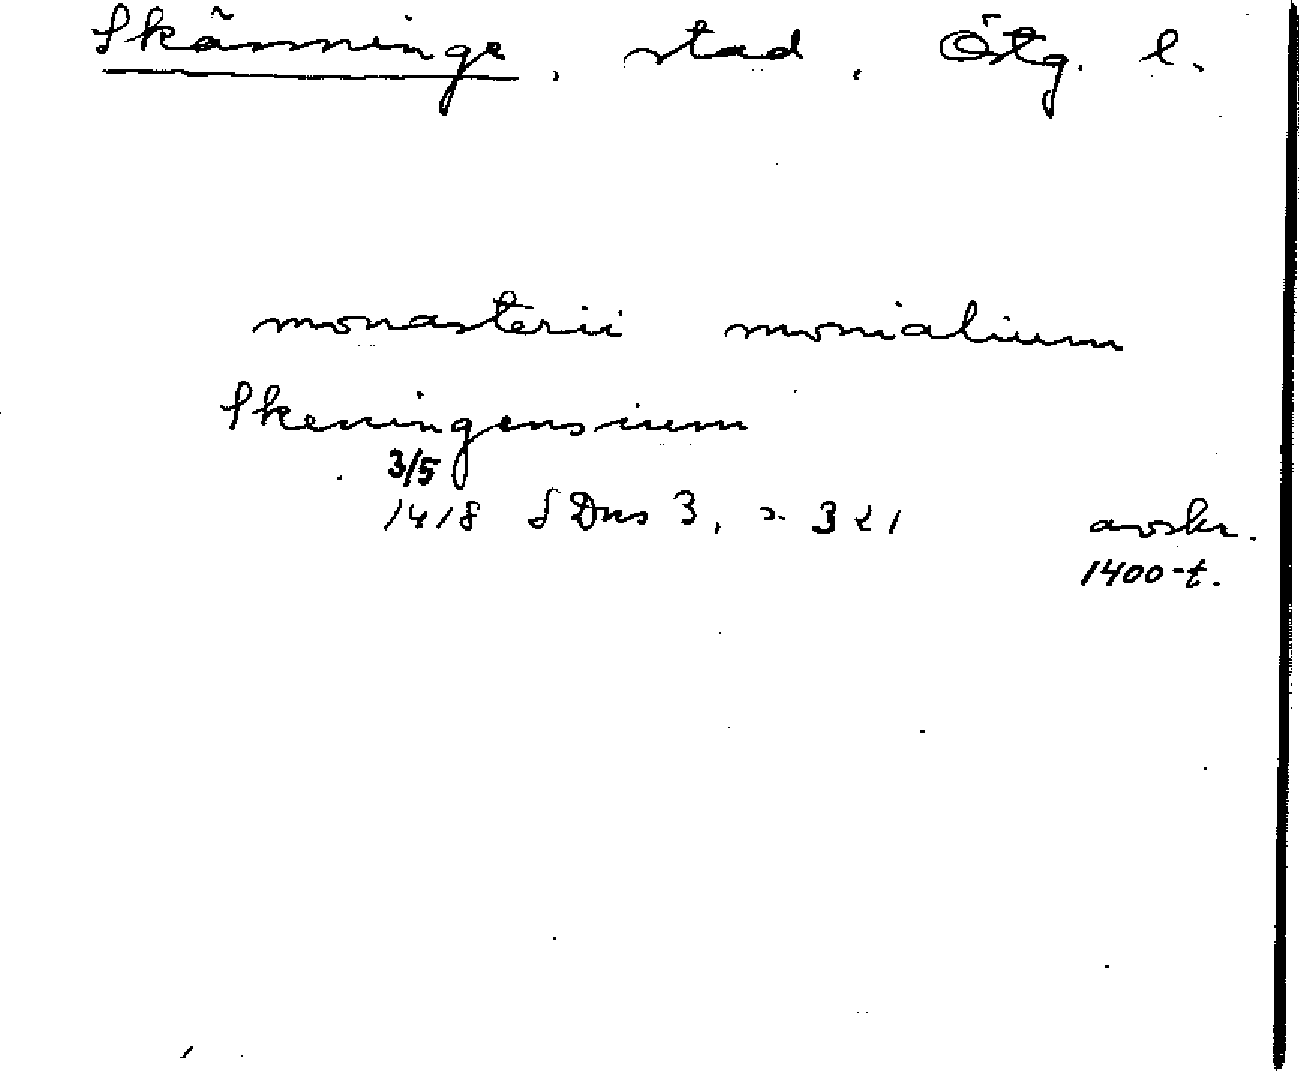 Skänninge, stad, Östg. l.
monasterii monialium
Skeningensium
3/5
1418 SDns 3, s. 321 avskr.
1400-t.